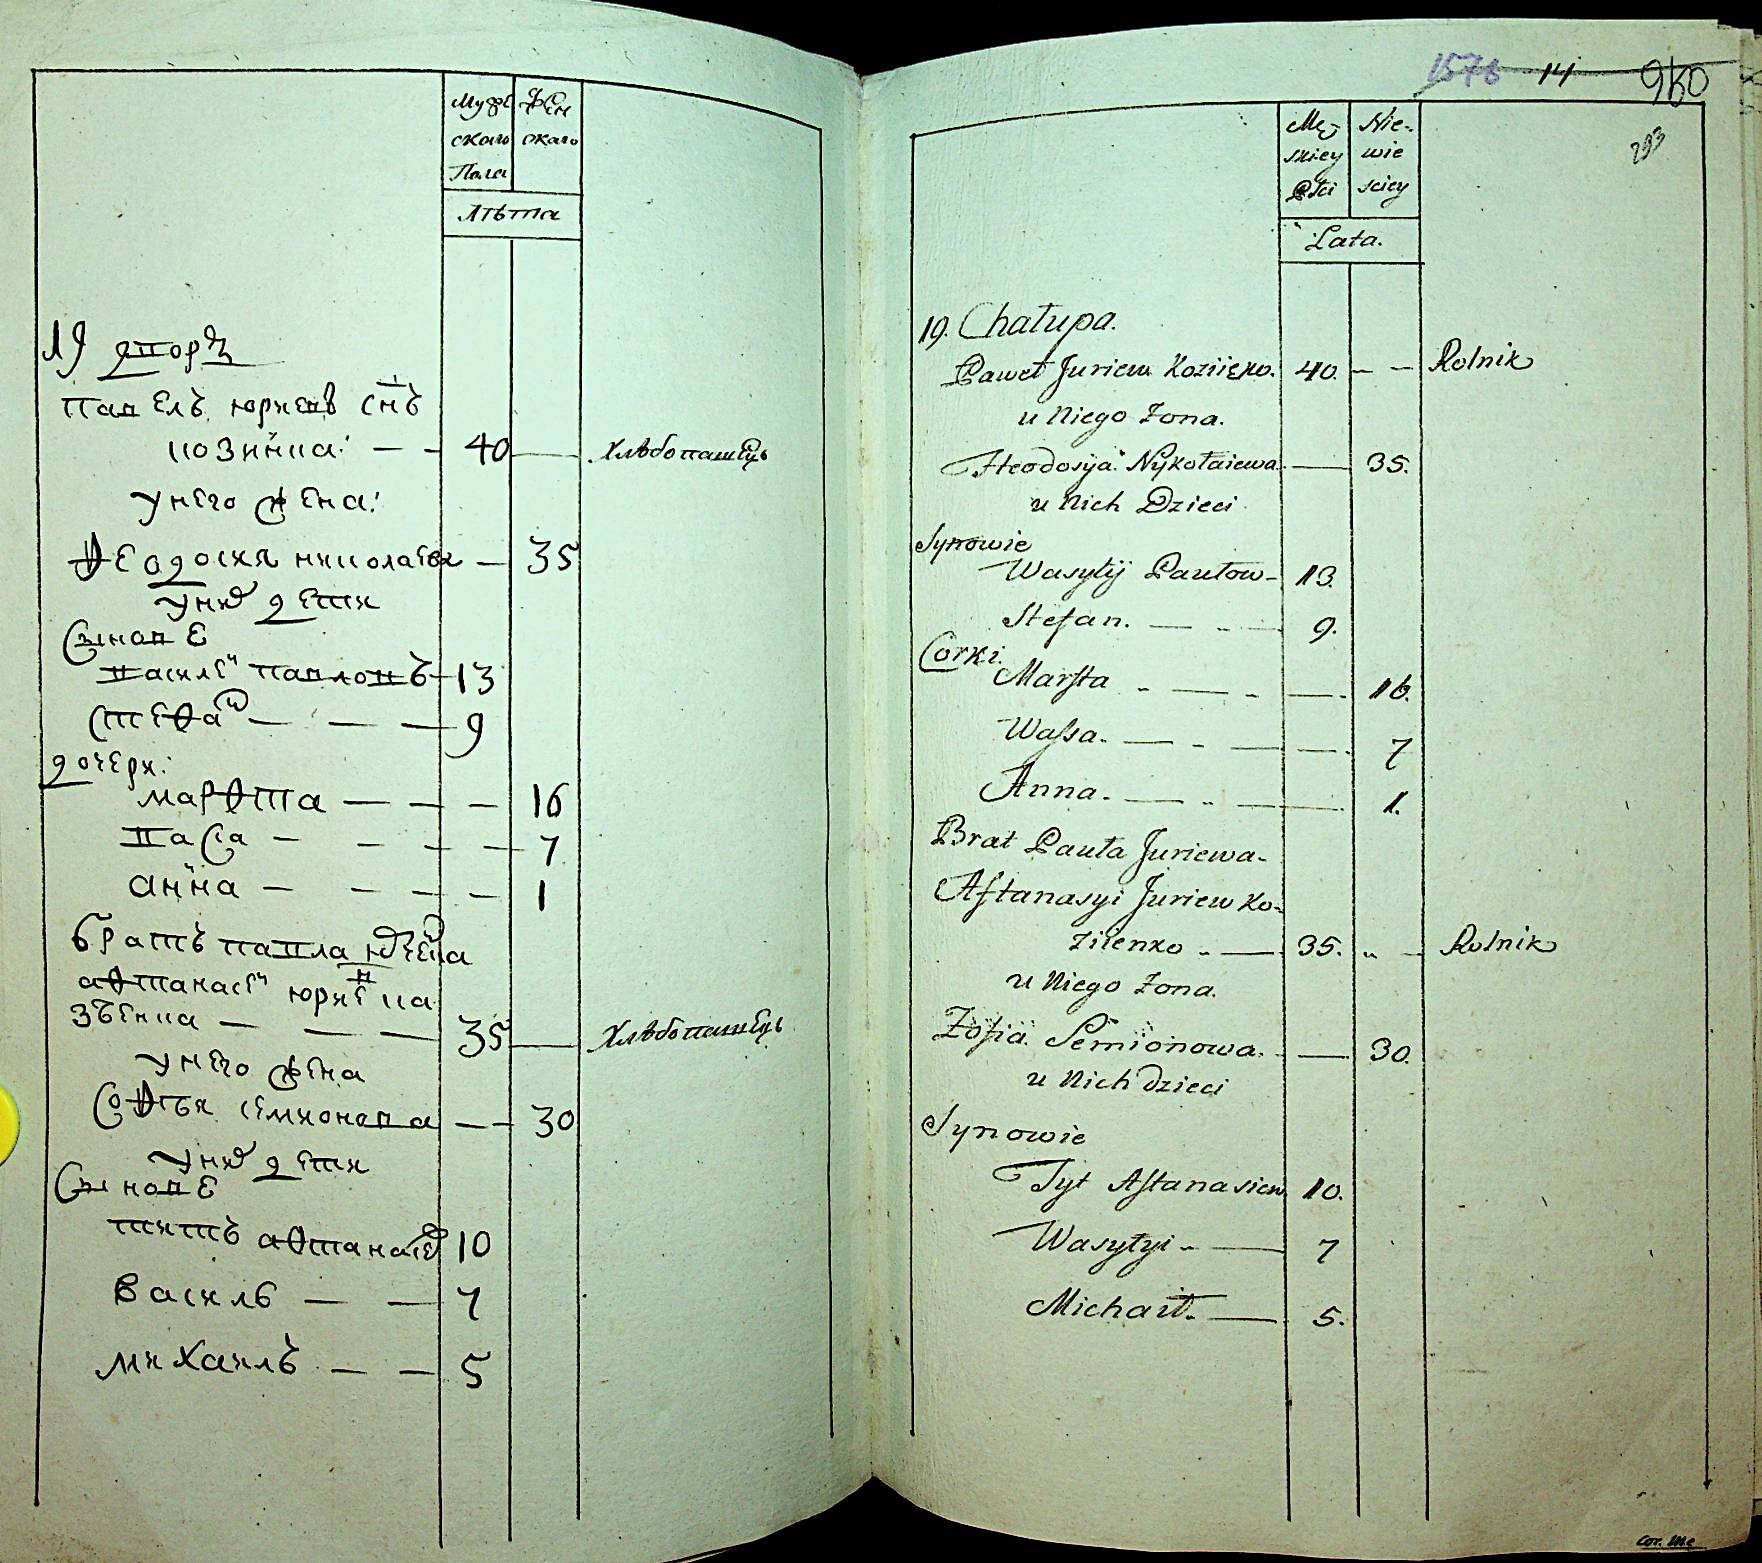 Муже Жен
скаго скаго
Пола
Лѣта
19 дворъ
павелъ юриевъ снъ
козийка: 40 хлѣбопашецъ
у него жена:
феодосия николаева 35
у них дети
Сынове
василей павловъ 13
стефан 9
дочери:
марфта 16
васса 7
анна 1
братъ павла юриева
афтанасей юриев ка
зѣенка 35 хлѣбопашецъ
у него жена
Софья семионова 30
у них дети
Сынове
титъ афтанасев 10
василь 7
михаилъ 5
1576 14 950
293
Mę- Nie-
skiey wie
Płci sciey
Lata.
19. Chałupa.
Paweł Juriew Koziieko. 40. Rolnik
u Niego Zona.
Fteodosyja Nykołaiewa 35.
u Nich Dzieci
Synowie
Wasylij Pawłow 13.
Stefan. 9.
Corki.
Marfta 16.
Wassa. 7
Anna. 1.
Brat Pawła Juriewa
Aftanasyi Juriew Ko-
ziienko 35. Rolnik
u Niego Zona.
Zofia Semionowa. 30.
u Nich dzieci
Synowie
Tyt Aftanasiew 10.
Wasylyi 7
Michaił. 5.